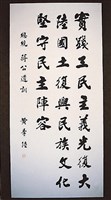 實踐三民主義光復大
陸國土復興民族文化
堅守民主陣容
總統 蔣公遺訓 黃季陸